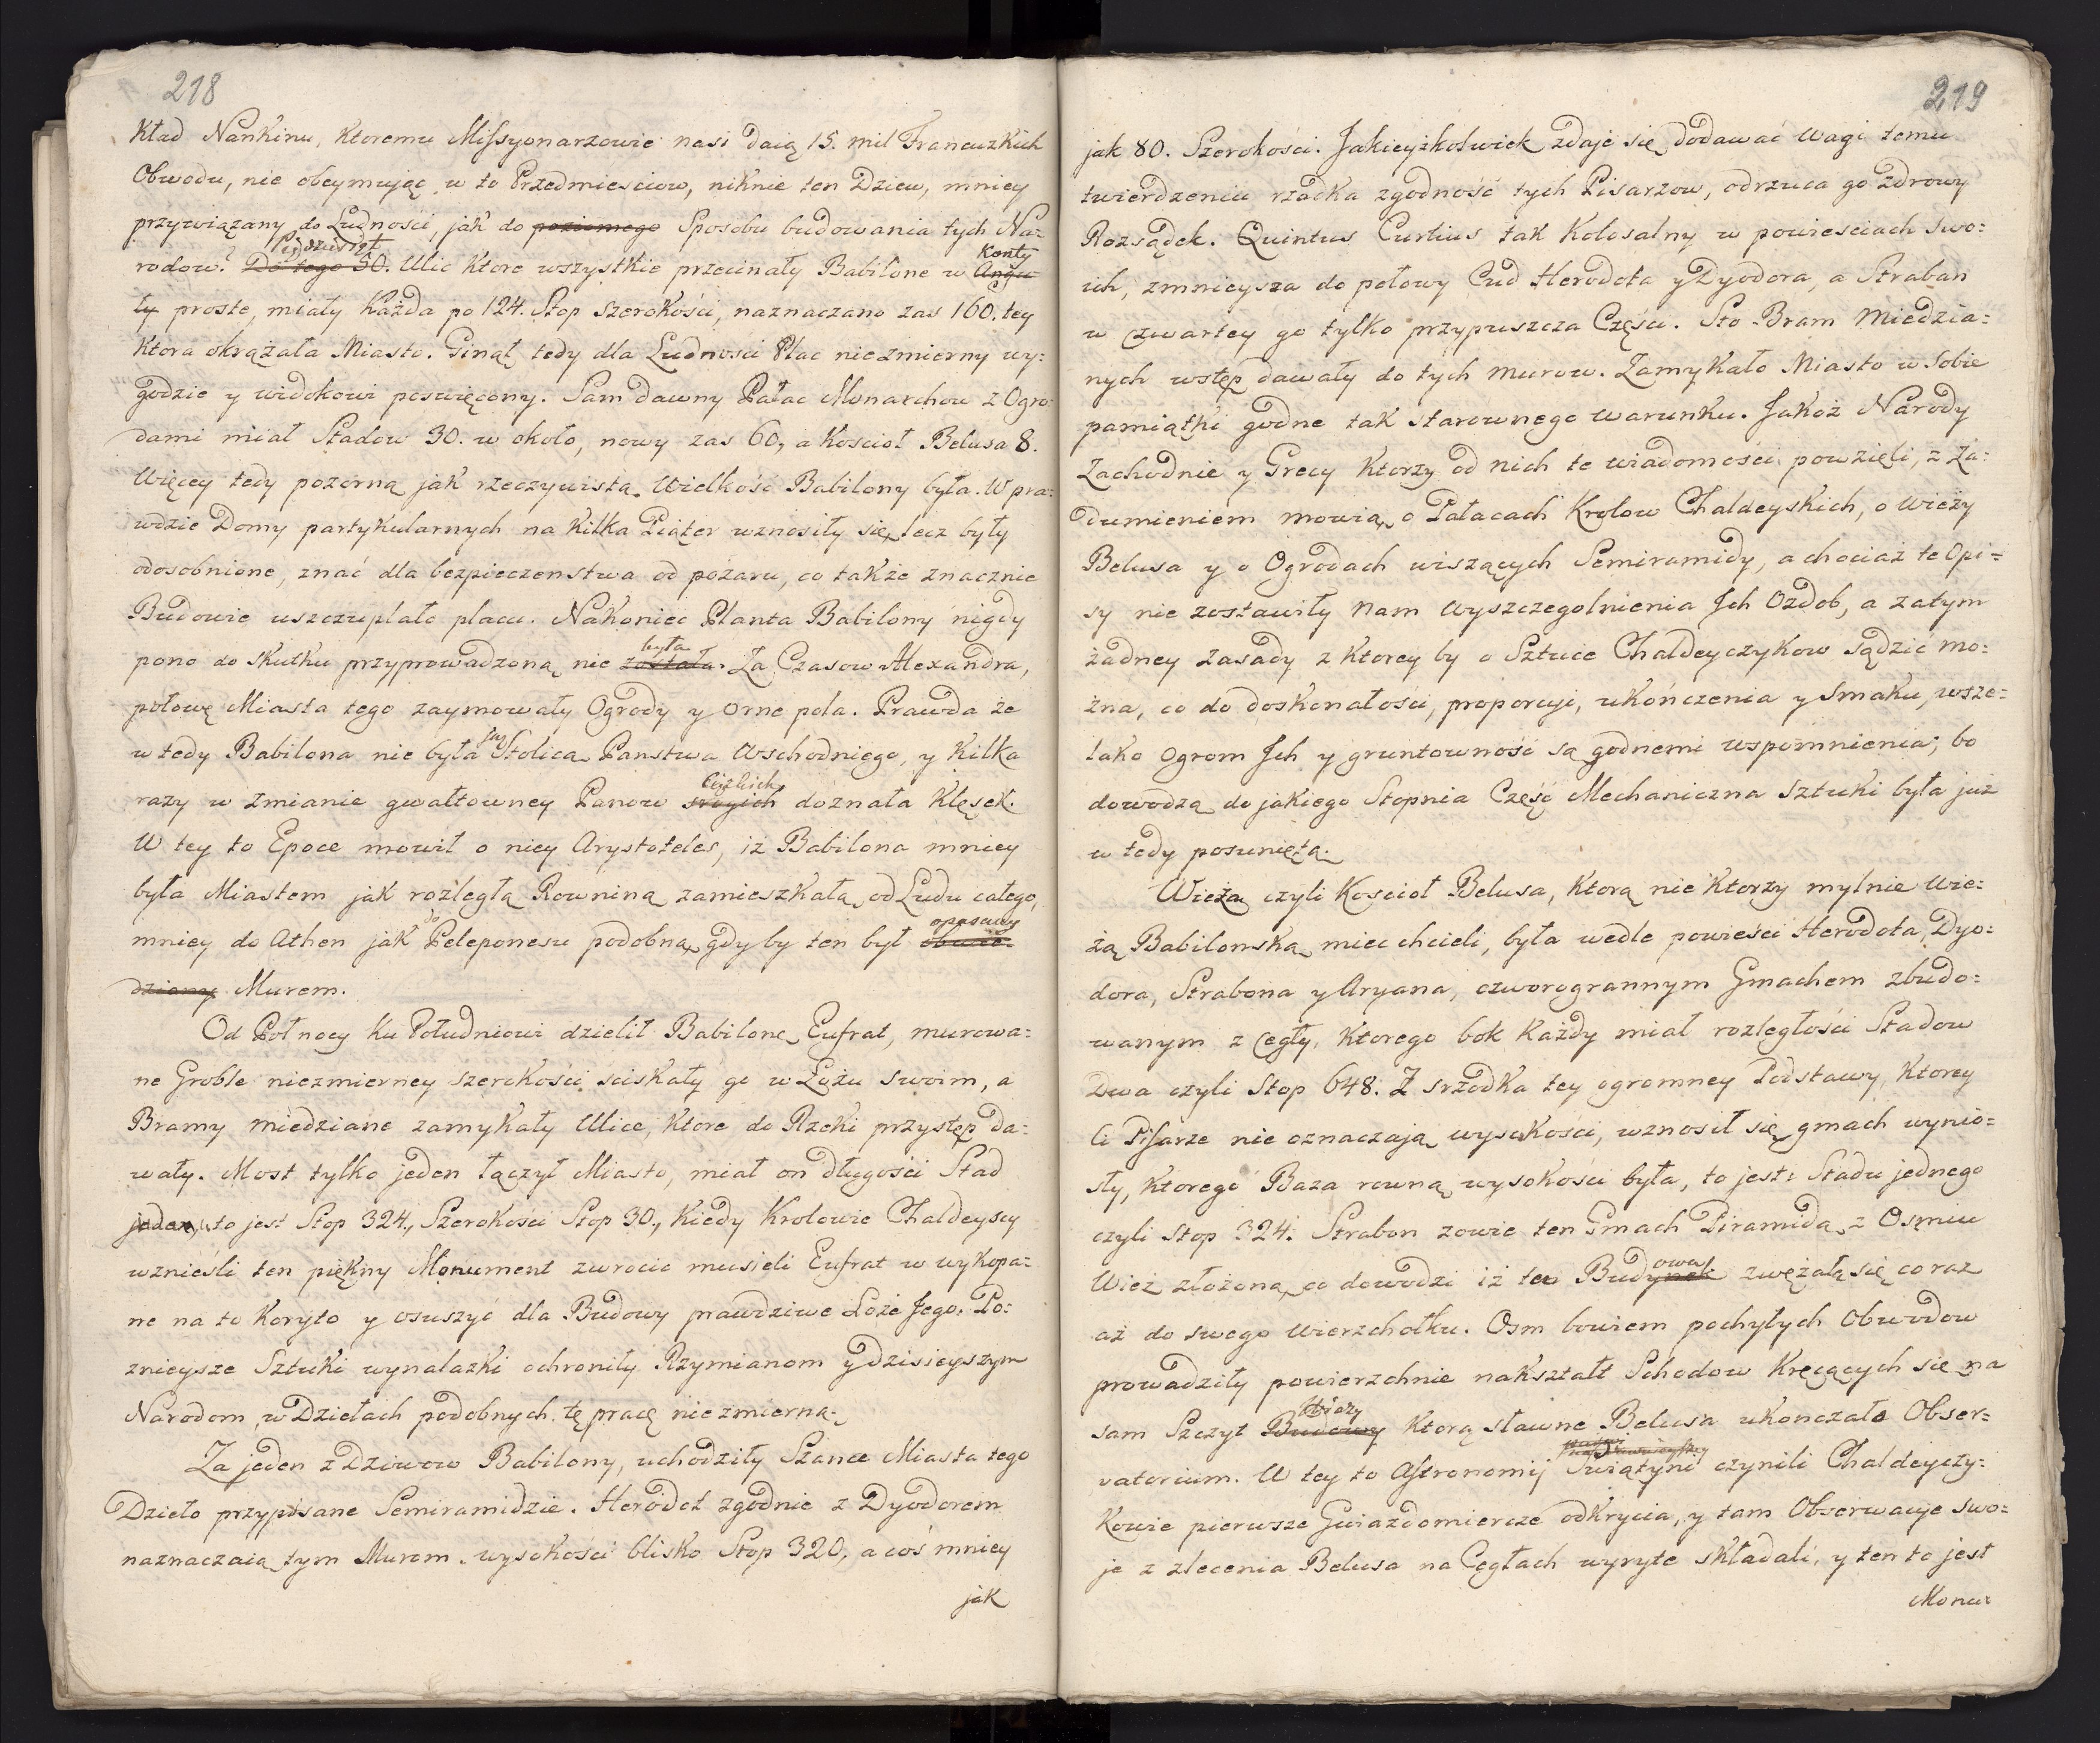 218
kład Nankinu, ktoremu Missyonarzowie nasi daią 15. mil Francuzkich
Obwodu, nie obeymuiąc w to Przedmiesciow, niknie ten Dziew, mniey
przywiązany do Ludności, jak do poziomego Sposobu budowania tych Na=
Pięćdziesiąt
Konty
rodow? Do tego 50. Ulic ktore wszystkie przecinały Babilone w Angu=
ły proste, miały każda po 124. Stop szerokości, naznaczano zas 160. tey
ktora okrążała Miasto. Ginął tedy dla Ludnosci Plac niezmierny wy=
godzie y widokowi poswięcony. Sam dawny Pałac Monarchow z Ogro=
dami miał Stadow 30. w około, nowy zas 60, a Kościoł Belusa 8.
Więcey tedy pozorną jak rzeczywistą Wielkość Babilony była. W pra=
wdzie Domy partykularnych na kilka Piąter wznosiły się, lecz były
odosobnione, znać dla bezpieczenstwa od pożaru, co także znacznie
Budowie uszczuplało placu. Nakoniec Planta Babilony nigdy
była
pono do skutku przyprowadzoną nie została. Za Czasow Alexandra,
połowę Miasta tego zaymowały Ogrody y orne pola. Prawda że
już
w tedy Babilona nie była Stolicą Panstwa Wschodniego, y kilka
Ciężkich
razy w zmianie gwałtowney Panow srogich doznała klęsek.
W tey to Epoce mowił o niey Arystoteles, iż Babilona mniey
była Miastem jak rozległą Rowniną zamieszkałą od Ludu całego,
do
opasany
mniey do Athen jak Peleponesu podobną, gdyby ten był obwie=
dziony Murem.
Od Połnocy ku Południowi dzielił Babilonę Eufrat, murowa=
ne Groble niezmierney szerokości sciskały go w Łożu swoim, a
Bramy miedziane zamykały Ulice, ktore do Rzeki przystęp da=
wały. Most tylko jeden łączył Miasto, miał on długości Stad
jeden, to jest Stop 324., Szerokości Stop 30., kiedy Krolowie Chaldeyscy
wznieśli ten piękny Monument zwrocic musieli Eufrat w wykopa=
ne na to koryto y osuszyć dla Budowy prawdziwe Łoże Jego. Po=
znieysze Sztuki wynalazki ochroniły Rzymianom y dzisieyszym
Narodom w Dziełach podobnych tę pracę niezmierną.
Za jeden z Dziwow Babilony, uchodziły Szance Miasta tego
Dzieło przypisane Semiramidzie. Herodot zgodnie z Dyodorem
naznaczaią tym Murom wysokości blisko Stop 320, a coś mniey
jak
219
jak 80. Szerokości. Jakieyżkolwiek zdaje się dodawać wagi temu
twierdzeniu rzadka zgodność tych Pisarzow, odrzuca go zdrowy
Rozsądek. Quintus Curtius tak Kolosalny w powiesciach swo=
ich, zmnieysza do połowy Cud Herodota y Dyodora, a Strabon
w czwartey go tylko przypuszcza Części. Sto Bram Miedzia=
nych wstęp dawały do tych murow. Zamykało Miasto w Sobie
pamiątki godne tak starownego warunku. Jakoż Narody
Zachodnie y Grecy ktorzy od nich te wiadomości powzięli, z za=
dumieniem mowią o Pałacach Krolow Chaldeyskich, o Wieży
Belusa y o Ogrodach wiszących Semiramidy, a chociaż te Opi=
sy nie zostawiły nam wyszczegolnienia Jch Ozdob, a zatym
żadney zasady z ktorey by o Sztuce Chaldeyczykow sądzić mo=
żna, co do doskonałości, proporcyi, ukończenia y Smaku, wsze=
lako ogrom Jch y gruntowność są godnemi wspomnienia; bo
dowodzą do jakiego Stopnia Część Mechaniczna Sztuki była już
w tedy posunięta.
Wieża czyli Koscioł Belusa, ktorą nie ktorzy mylnie Wie=
żą Babilonską miec chcieli, była wedle powieści Herodota, Dyo=
dora, Strabona y Aryana, czworogrannym Gmachem zbudo=
wanym z Cegły, ktorego bok każdy miał rozległości Stadow
Dwa czyli Stop 648. Z srzodka tey ogromney Podstawy, ktorey
Ci Pisarze nie oznaczają wysokości, wznosił się gmach wynio=
sły, ktorego Baza rowną wysokości była, to jest: Stadu jednego
czyli Stop 324. Strabon zowie ten Gmach Piramidą z Osmiu
owa
Wież złożoną, co dowodzi iż ta Budynek zwężała się co raz
aż do swego Wierzchołku. Osm bowiem pochyłych Obwodow
prowadziły powierzchnie nakształt Schodow kręcących się na
Wieży
sam Szczyt Budowy ktorą sławne Belusa ukonczało Obser=
vatorium. W tey to Astronomij Swiątyni czynili Chaldeyczy=
kowie pierwsze Gwiazdomiercze odkrycia, y tam Obserwacye swo=
je z zlecenia Belusa na Cegłach wyryte składali, y ten to jest
Monu=